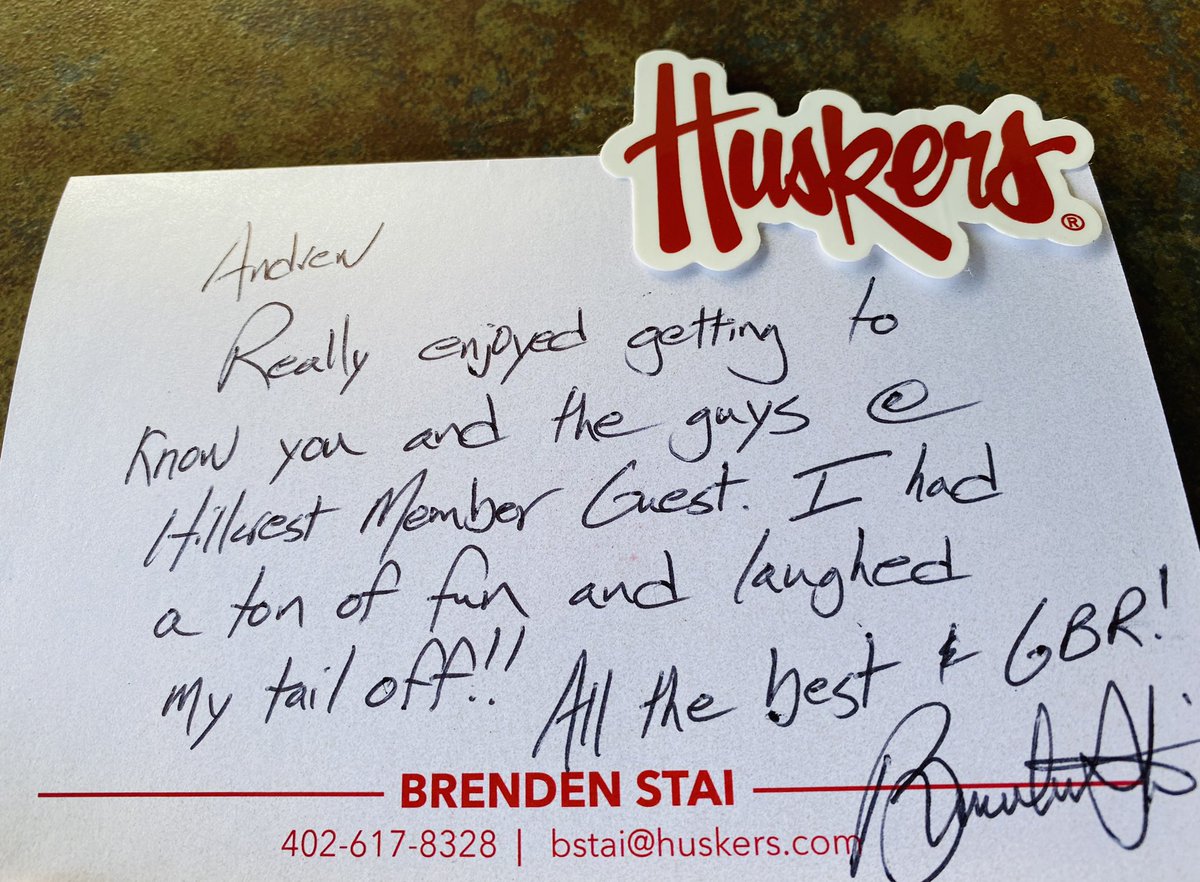 Huskers®
Andrew
Really enjoyed getting to
know you and the guys @
Hillcrest Member Guest. I had
a ton of fun and laughed
my tail off!! All the best & GBR!
BRENDEN STAI
402-617-8328 | bstai@huskers.com